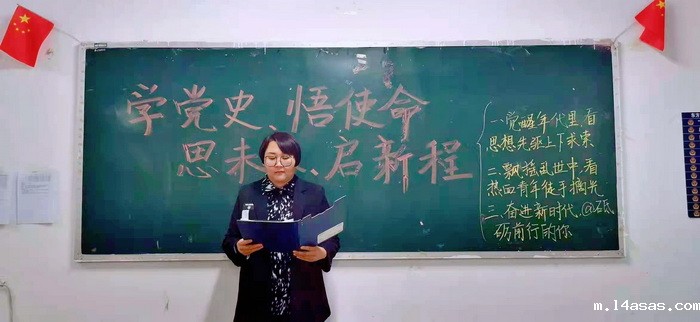 学党史、悟使命
思未、启新程
一、觉醒年代里,看
思想先驱上下求索
二、飘摇乱世中,看
热血青年徒手摘光
三、奋进新时代,@砥
砺前行的你
m.14asas.com